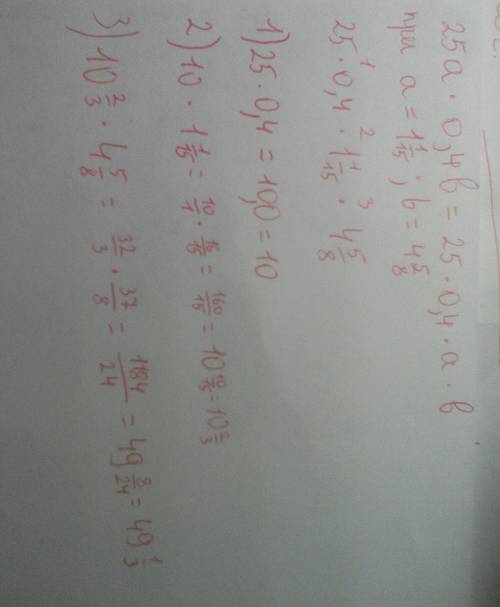 25a · 0,4b = 25 · 0,4 · a · b
при a = 1 1/15 ; b = 4 5/8
25 ·¹ 0,4 ·² 1 1/15 ·³ 4 5/8
1) 25 · 0,4 = 10,0 = 10
2) 10 · 1 1/15 = 10/1 · 16/15 = 160/15 = 10 10/15 = 10 2/3
3) 10 2/3 · 4 5/8 = 32/3 · 37/8 = 1184/24 = 49 8/24 = 49 1/3